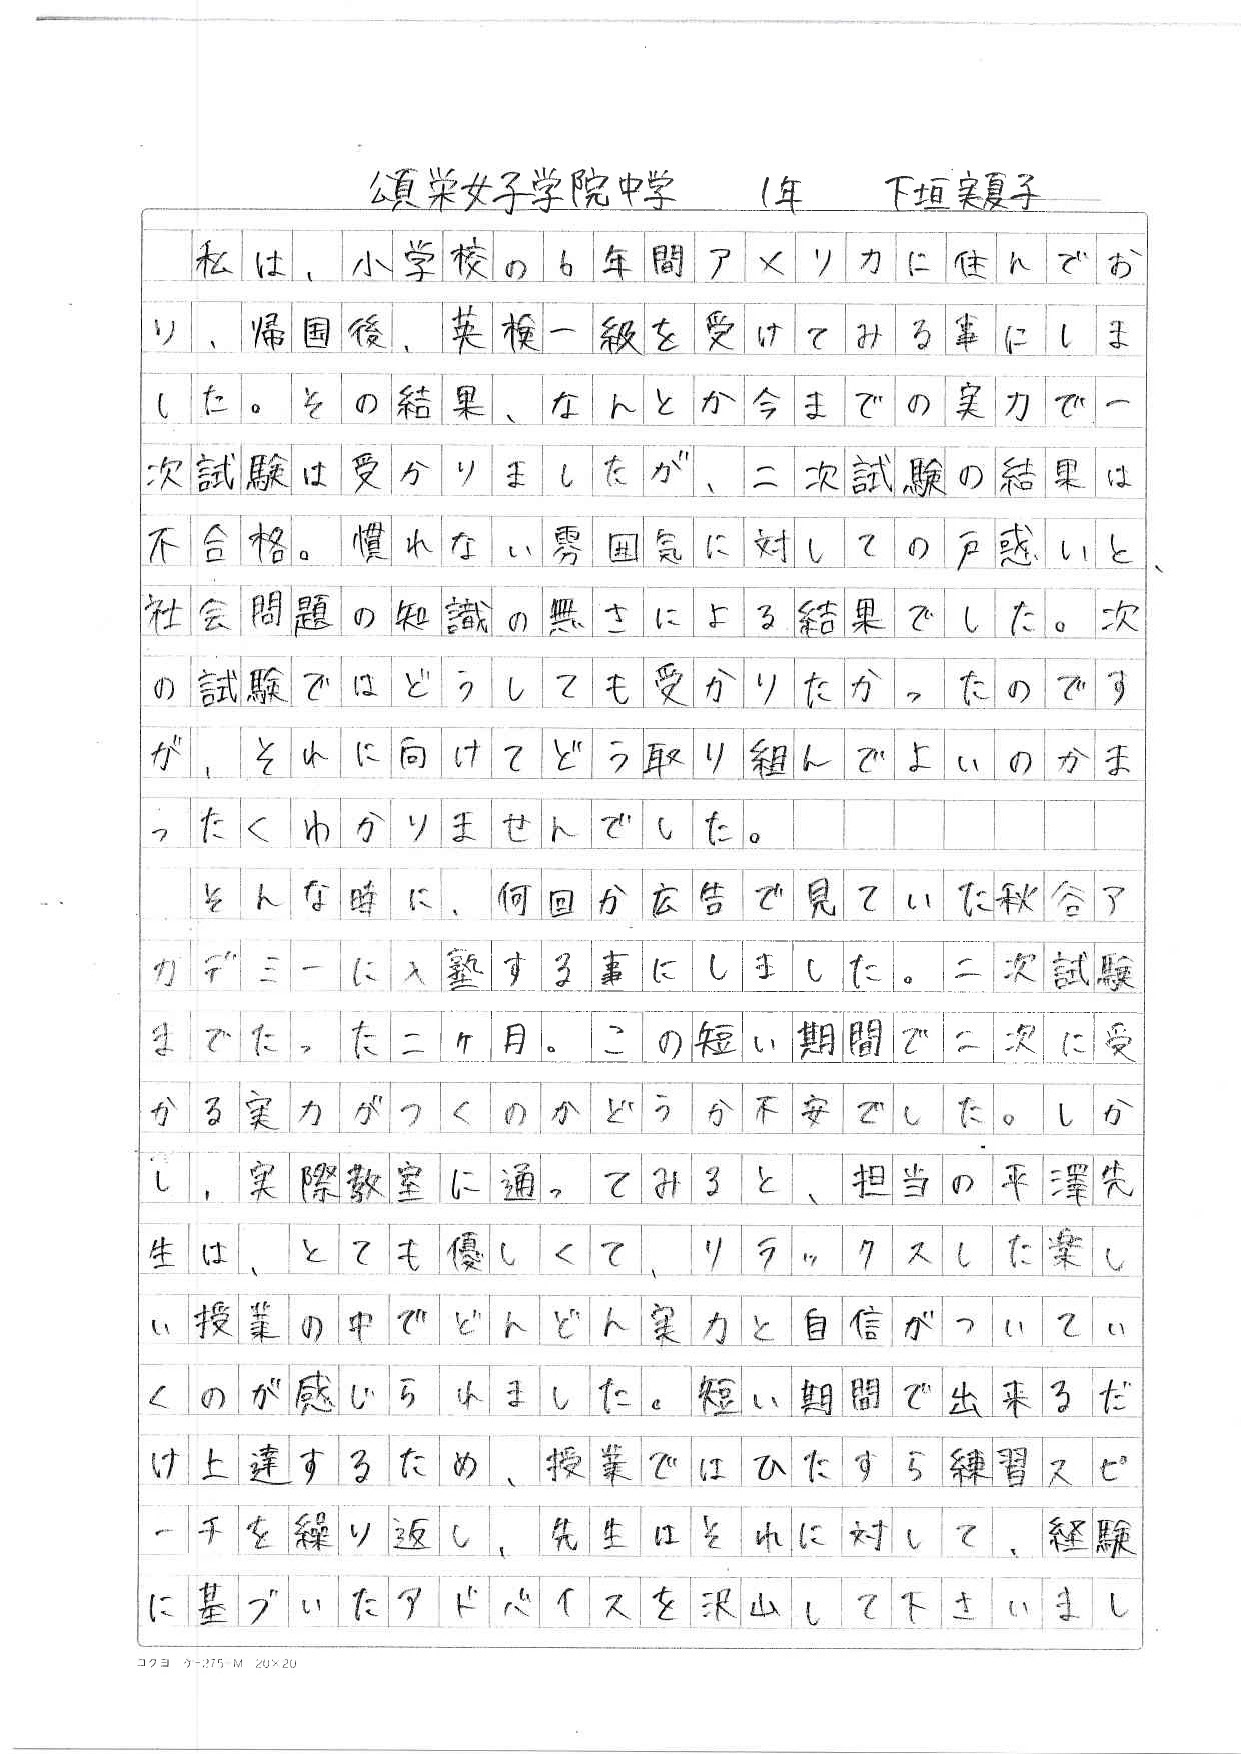 頌栄女子学院中学　1年　下垣実夏子
　私は、小学校の6年間アメリカに住んでお
り、帰国後、英検一級を受けてみる事にしま
した。その結果、なんとか今までの実力で一
次試験は受かりましたが、二次試験の結果は
不合格。慣れない雰囲気に対しての戸惑いと、
社会問題の知識の無さによる結果でした。次
の試験ではどうしても受かりたかったのです
が、それに向けてどう取り組んでよいのかま
ったくわかりませんでした。
　そんな時に、何回か広告で見ていた秋谷ア
カデミーに入塾する事にしました。二次試験
までたった二ヶ月。この短い期間で二次に受
かる実力がつくのかどうか不安でした。しか
し、実際教室に通ってみると、担当の平澤先
生は、とても優しくて、リラックスした楽し
い授業の中でどんどん実力と自信がついてい
くのが感じられました。短い期間で出来るだ
け上達するため、授業ではひたすら練習スピ
ーチを繰り返し、先生はそれに対して、経験
に基づいたアドバイスを沢山して下さいまし
コクヨ ケ-275-M 20×20